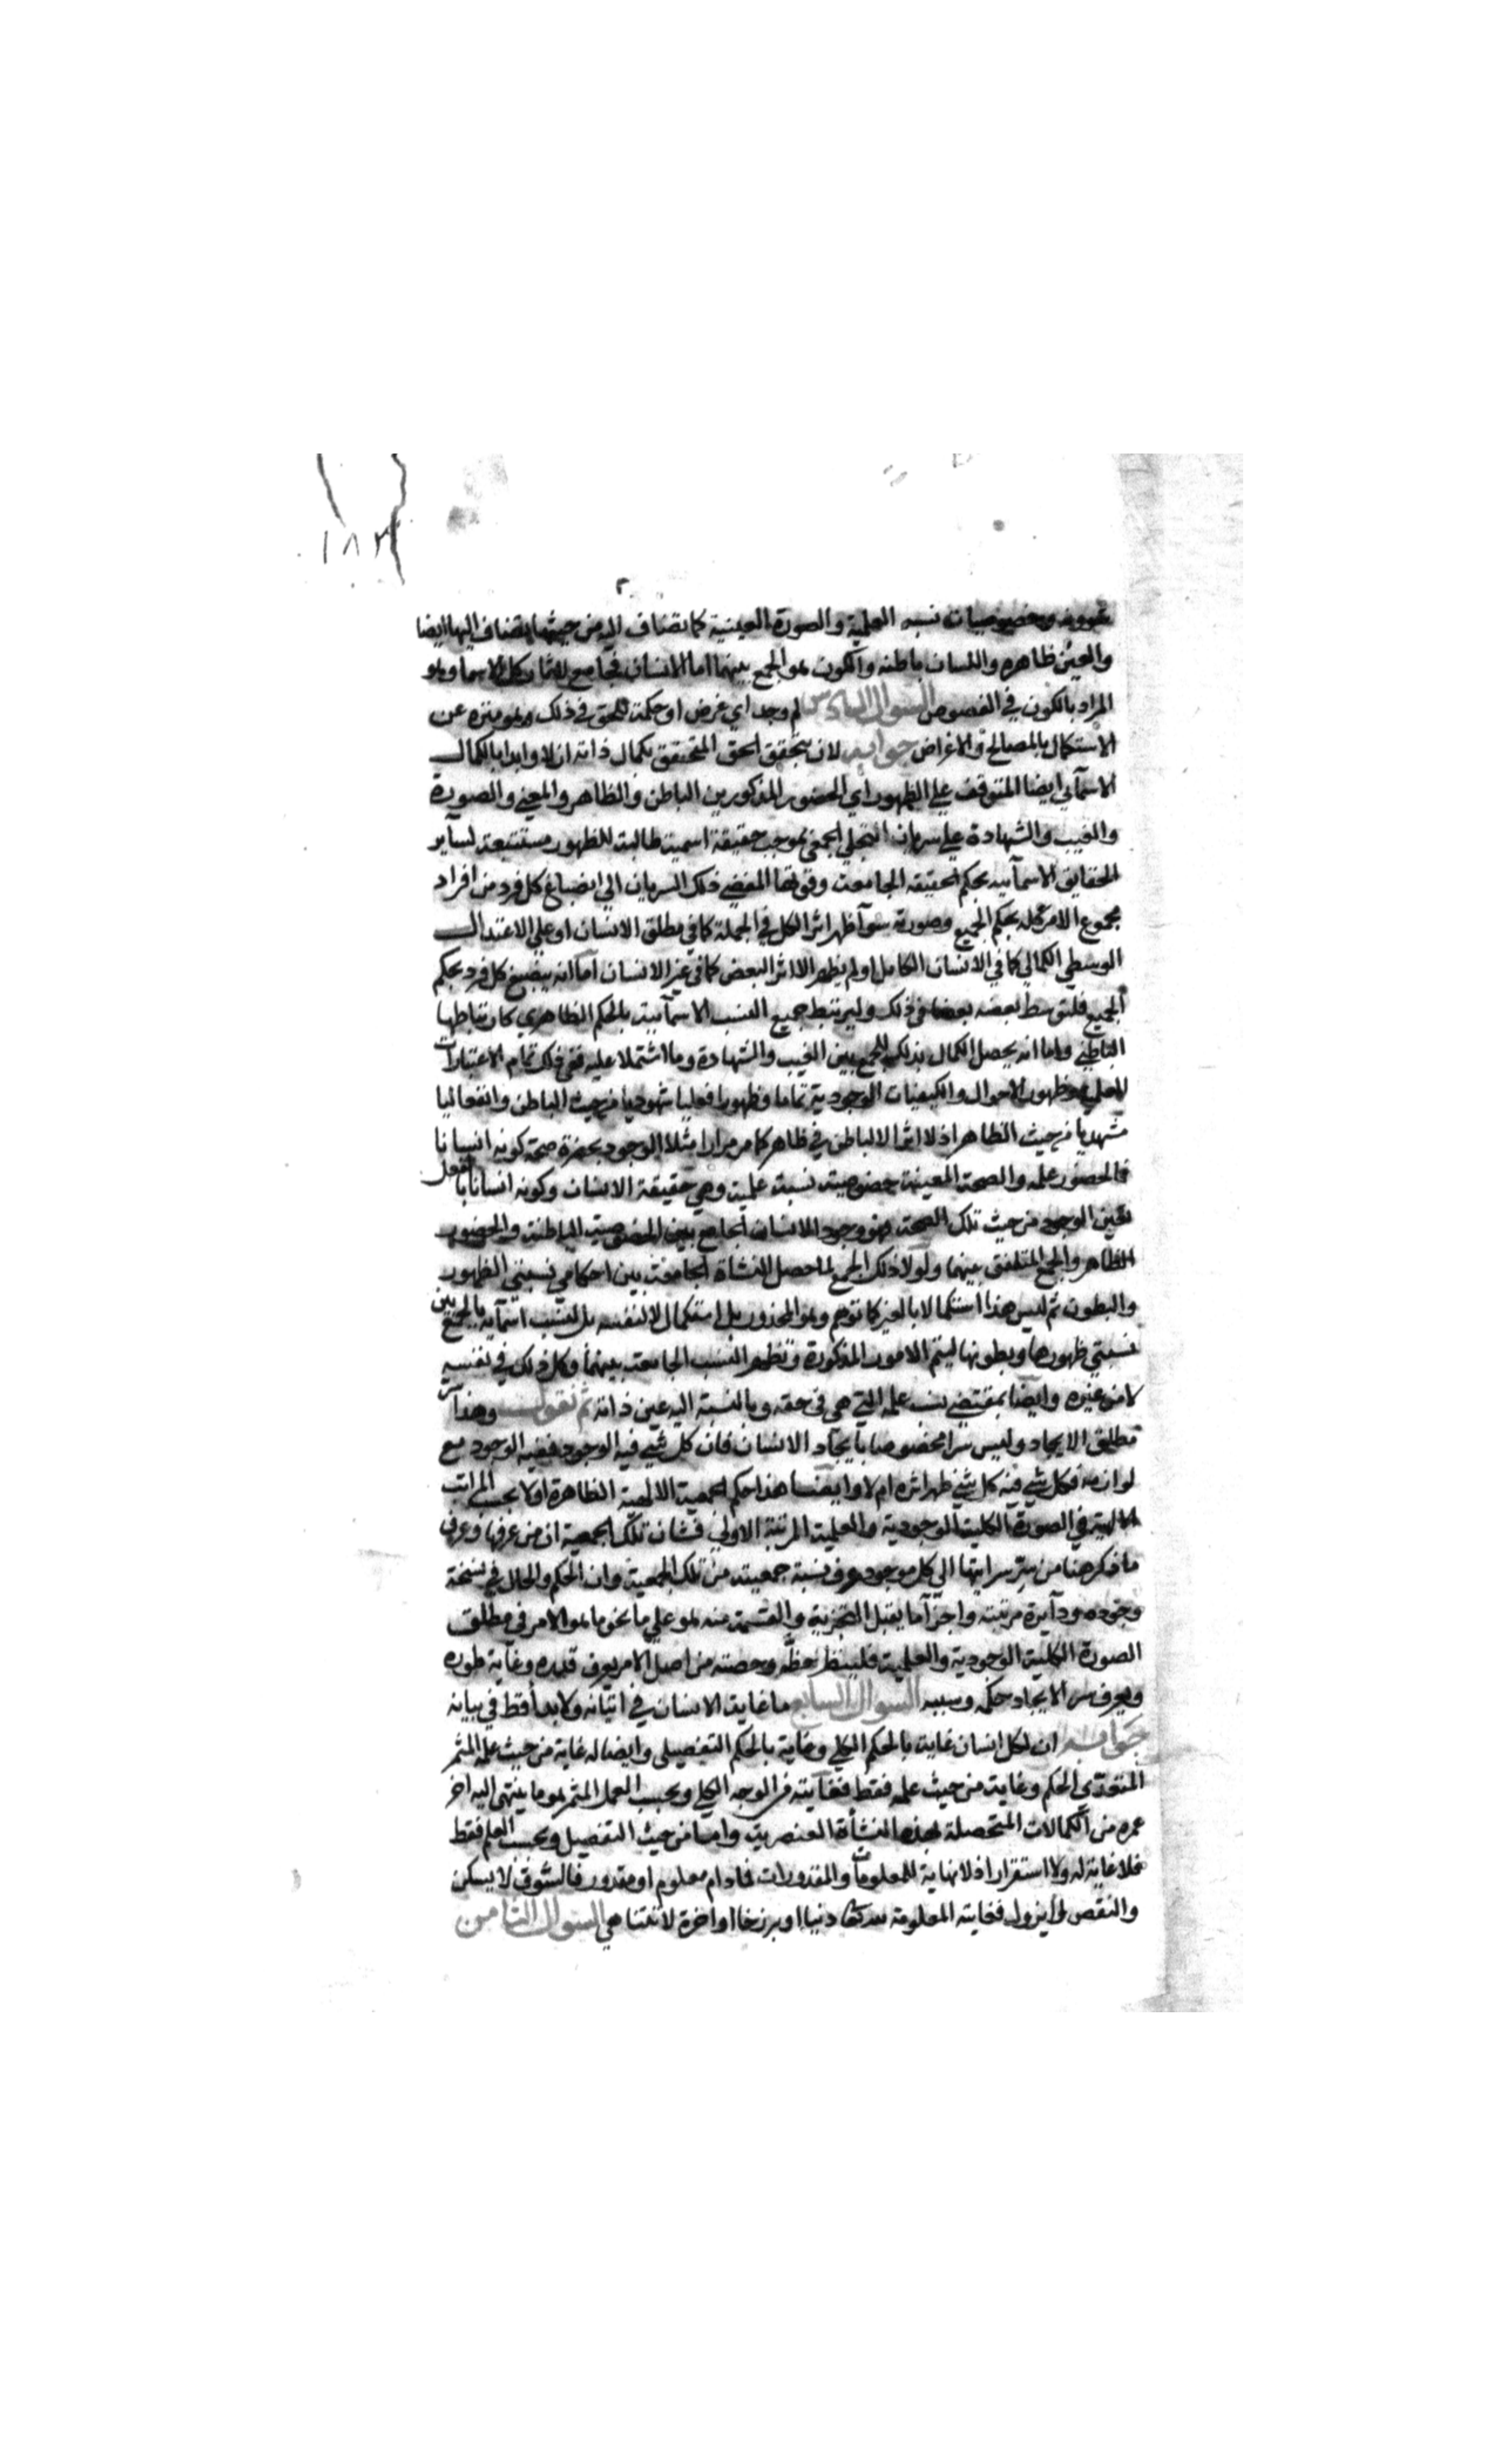 ١٨٣
شوونه وخصوصيات نسبه العلمية والصورة العينية كما تضاف اليه من حيثها يضاف اليها ايضا
والعين ظاهره واللسان باطنه والكون هو الجمع بينهما اما الانسان فجامع لاثار كل الاسما وهو
المراد بالكون في الفصوص السوال السادس لم وجد اي غرض او حكمة للحق في ذلك وهو منزه عن
الاستكمال بالمصالح والاغراض جوابه لان يتحقق الحق المتحقق بكمال ذاته ازلا وابدا بالكمال
الاسمآئي ايضا المتوقف علي الظهور اي الحضور المذكورين الباطن والظاهر والمعني والصورة
والغيب والشهادة علي سريان التجلي الجمعي بموجب حقيقة اسمية طالبة للظهور مستتبعة لسآير
الحقايق الاسمآئيه بحكم الحقيقه الجامعة وقوتها المفضي ذلك السريان الي انصباغ كل فرد من افراد
مجموع الامر كله بحكم الجميع وصورته سوآ ظهر اثر الكل في الجملة كما في مطلق الانسان او علي الاعتدال
الوسطي الكمالي كما في الانسان الكامل او لم يظهر الا اثر البعض كما في غير الانسان اما انه ينصبغ كل فرد بحكم
الجميع فلتوسط بعضه بعضا في ذلك وليرتبط جميع النسب الاسمآئية بالحكم الظاهري كارتباطها
الباطني واما انه يحصل الكمال بذلك للجمع بين الغيب والشهادة وما اشتملا عليه ففي ذلك تمام الاعتبارات
العلمية وظهور الاحوال والكيفيات الوجودية تماما وظهورا فعليا شهوديا من حيث الباطن وانفعاليا
مشهديا من حيث الظاهر اذ لا اثر الا لباطن في ظاهر كما مر مرارا مثلا الوجود بحضرة صحة كونه انسانا
فالحضور علمه والصحة المعينة خصوصية نسبة علمية وهي حقيقة الانسان وكونه انسانا بالفعل
تعين الوجود من حيث تلك الصحة فهو وجود الانسان الجامع بين الخصوصية الباطنة والحضور
الظاهر والجمع المتلفق بينهما ولولا ذلك الجمع لما حصل النشاة الجامعة بين احكامي نسبتي الظهور
والبطون ثم ليس هذا استكمالا بالغير كما توهم وهو المحذور بل استكمال لا لنفسه بل لنسب اسمآيه بالجمع بين
نسبتي ظهورها وبطونها ليتم الامور المذكورة وتظهر النسب الجامعة بينهما وكل ذلك في نفسه
لا من غيره وايضا بمقتضي نسب علمه التي هي في حقه وبالنسبة اليه عين ذاته ثم نقول وهذا سر
مطلق الايجاد وليس سرا مخصوصا بايجاد الانسان فان كل شي فيه الوجود ففيه الوجود مع
لوازمه فكل شي فيه كل شي ظهر اثره ام لا وايضا هذا حكم الجمعية الالهية الظاهرة اولا بحسب المراتب
في الصورة الكلية الوجودية والعلمية المرتبة الاولي فشان تلك الجمعية ان من عرفها وعرف
ما ذكر هنا من سر سرايتها الي كل موجود عرف نسبة جمعيته من تلك الجمعية وان الحكم والحال في نسخة
وجوده ودآيرة مرتبته واجزآ ما يقبل التجزية والقسمة منه هو علي ما نحو ما هو الامر في مطلق
الصورة الكلية الوجودية والعلمية فلينظر حظه وحصته من اصل الامر يعرف قدره وغاية طوره
ويعرف سر الايجاد حكمه وسببه السوال السابع ما غاية الانسان في اتيانه ولابدا فقط في بيانه
جوابه ان لكل انسان غاية بالحكم الكلي وغاية بالحكم التفصيلي وايضا له غاية من حيث علمه المثمر
المتعدي الحكم وغاية من حيث علمه فقط فغايته من الوجه الكلي وبحسب العمل المثمر هو ما ينتهي اليه اخر
عمره من الكمالات المتحصلة بهذه النشأة العنصرية واما من حيث التفصيل وبحسب العلم فقط
فلا غاية له ولا استقرار اذ لا نهاية للمعلومات والمقدورات فما دام معلوم او مقدور فالشوق لا يسكن
والنقص لا يزول فغايته المعلومة دنيا او برزخا او اخرة لا تتناهي السوال الثامن